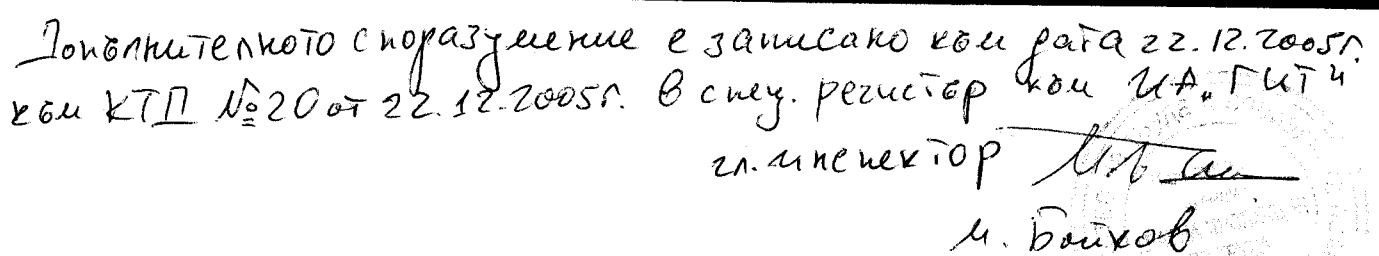 Допълнително споразумение е записано към дата 22.12.2005г.
към КТД №20 от 22.12.2005г. в спец. регистър към ИА„ГИТ"
гл. инспектор
М. Бойков